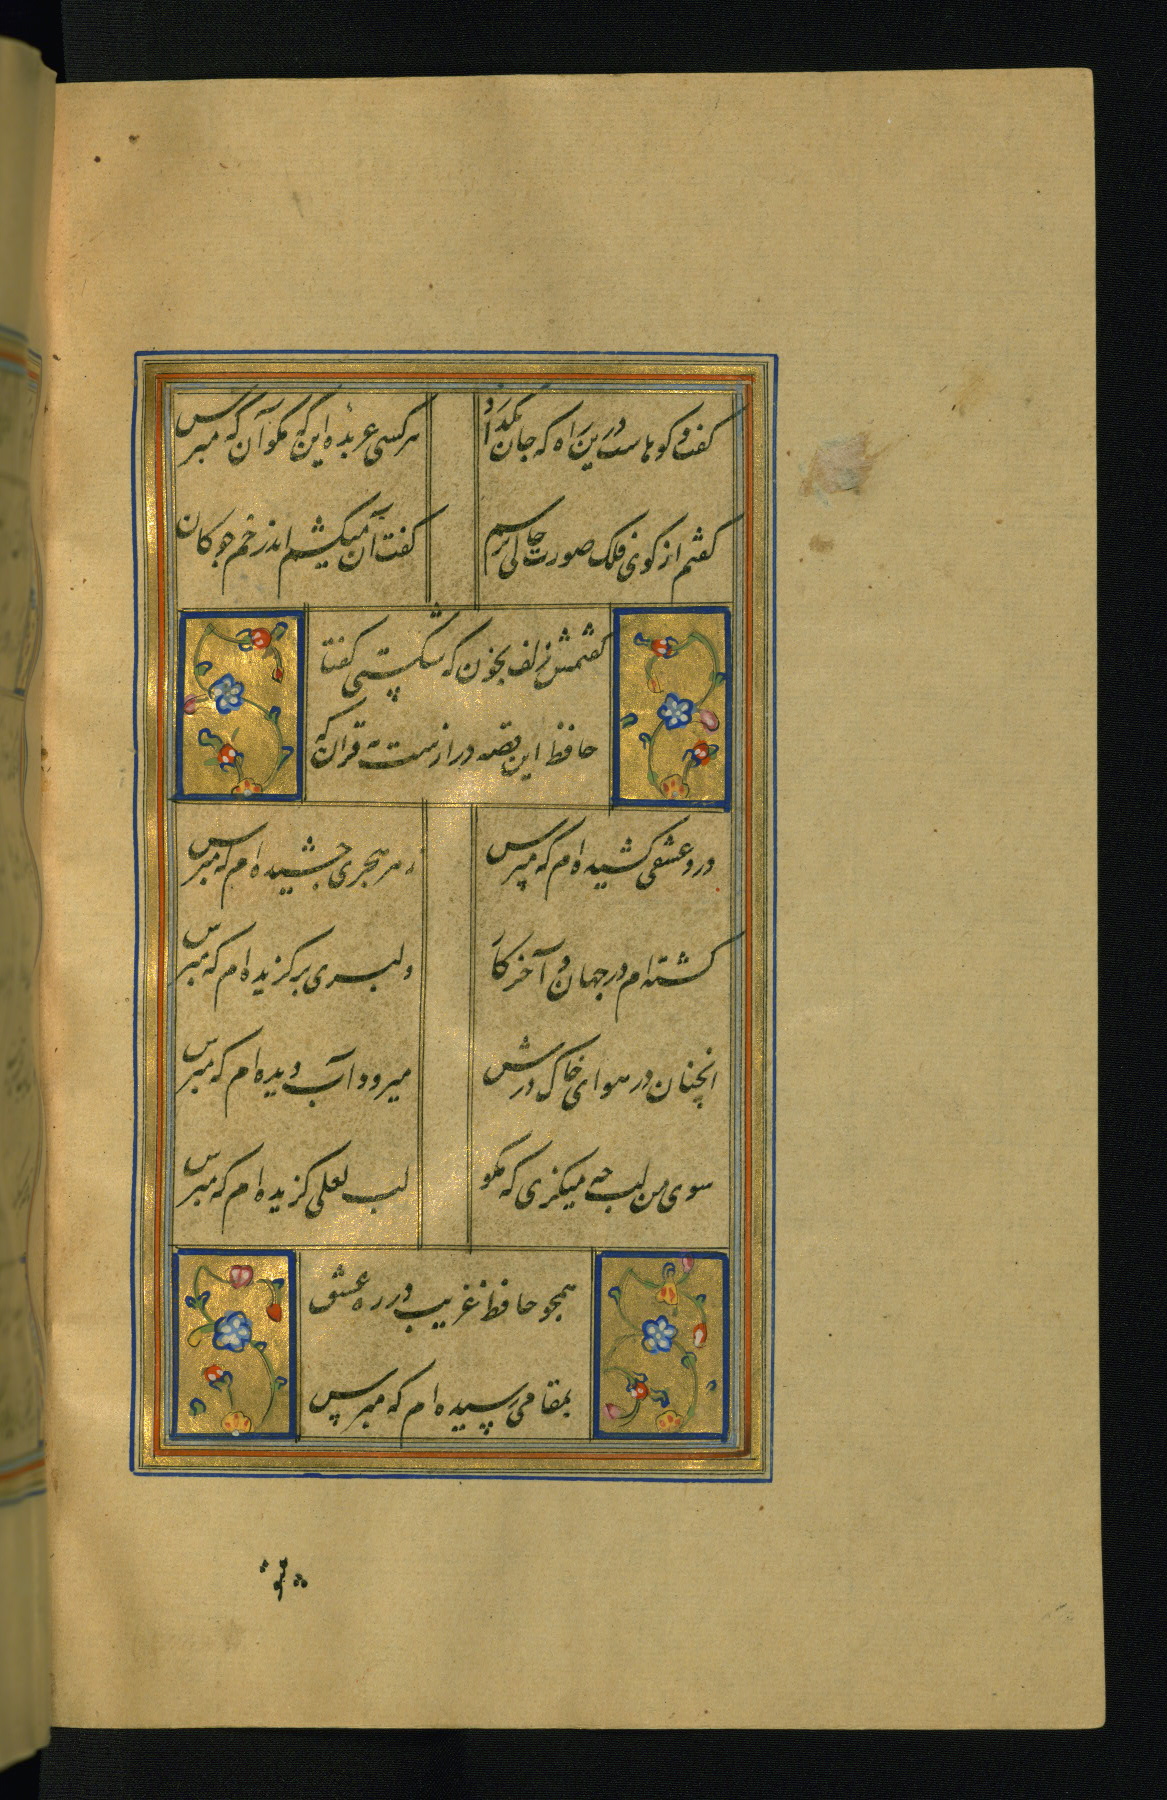 گفت و گوهاست درین راه که جان بگدازد هر کسی عربده این که مگو آن که مپرس
گفتم از گوی فلک صورت حالی پرسم گفت آن میکشم اندر خم چوگان
گفتمش زلف بخون که شکستی گفتا
حافظ این قصه درازست به قرآن که
درد عشقی کشیده ام که مپرس زهر هجری چشیده ام که مپرس
گشته ام در جهان و آخر کار دلبری برگزیده ام که مپرس
انچنان در هوای خاک درش میرود آب دیده ام که مپرس
سوی من لب چه میگزی که مگو لب لعلی گزیده ام که مپرس
همچو حافظ غریب در ره عشق
بمقامی رسیده ام که مپرس